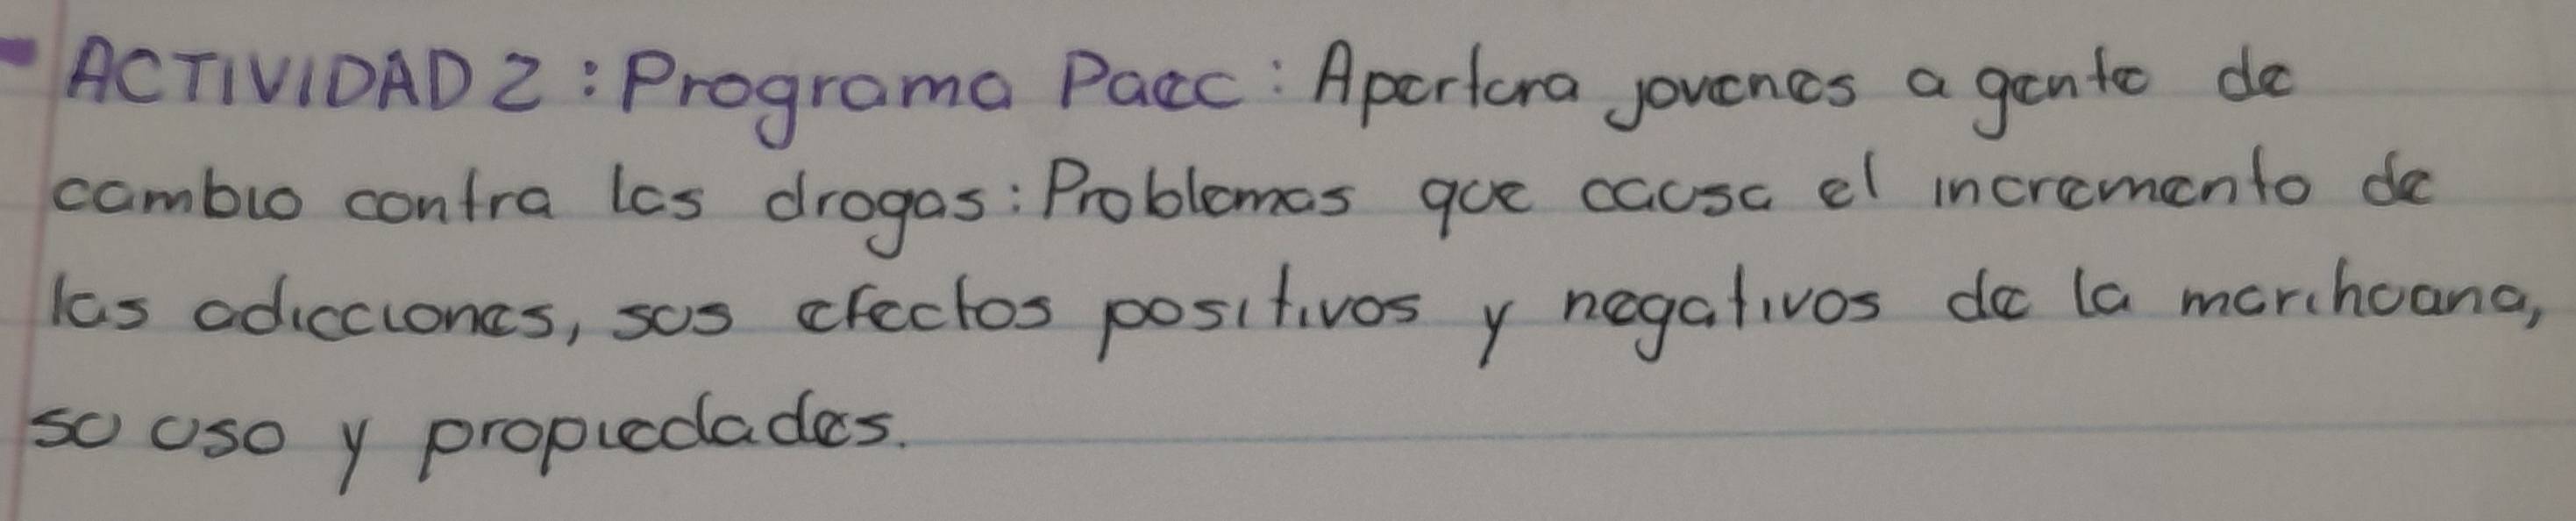 - ACTIVIDAD 2 : Programa Paec : Apertura jovenes agente de
cambio contra las drogas : Problemas que causa el incremento de
las adicciones, sus efectos positivos y negativos de la marihuana,
su uso y propiedades.